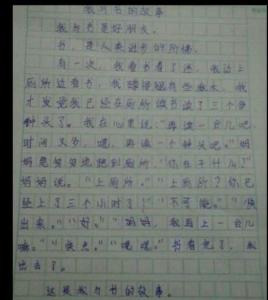 我与书的故事
我与书是好朋友。
书,是人类进步的阶梯。
有一次,我看书看了迷,我边上
厕所边看书,我 有些
才发觉我已经在厕所读书读了三个多
钟头了。我在心里说:"再读一会儿吧
时间 嗯,再读一个钟头吧。"
妈 地跑到厕所,"你在干什么?"
妈妈说。"上厕所。""上厕所?你已
经上了三个小时了!""不可能。""快
出来。""好。""妈妈,我再上一会儿
嘛。""快点。""嗯嗯。"书看完了,我
出去了。
这是我与书的故事。